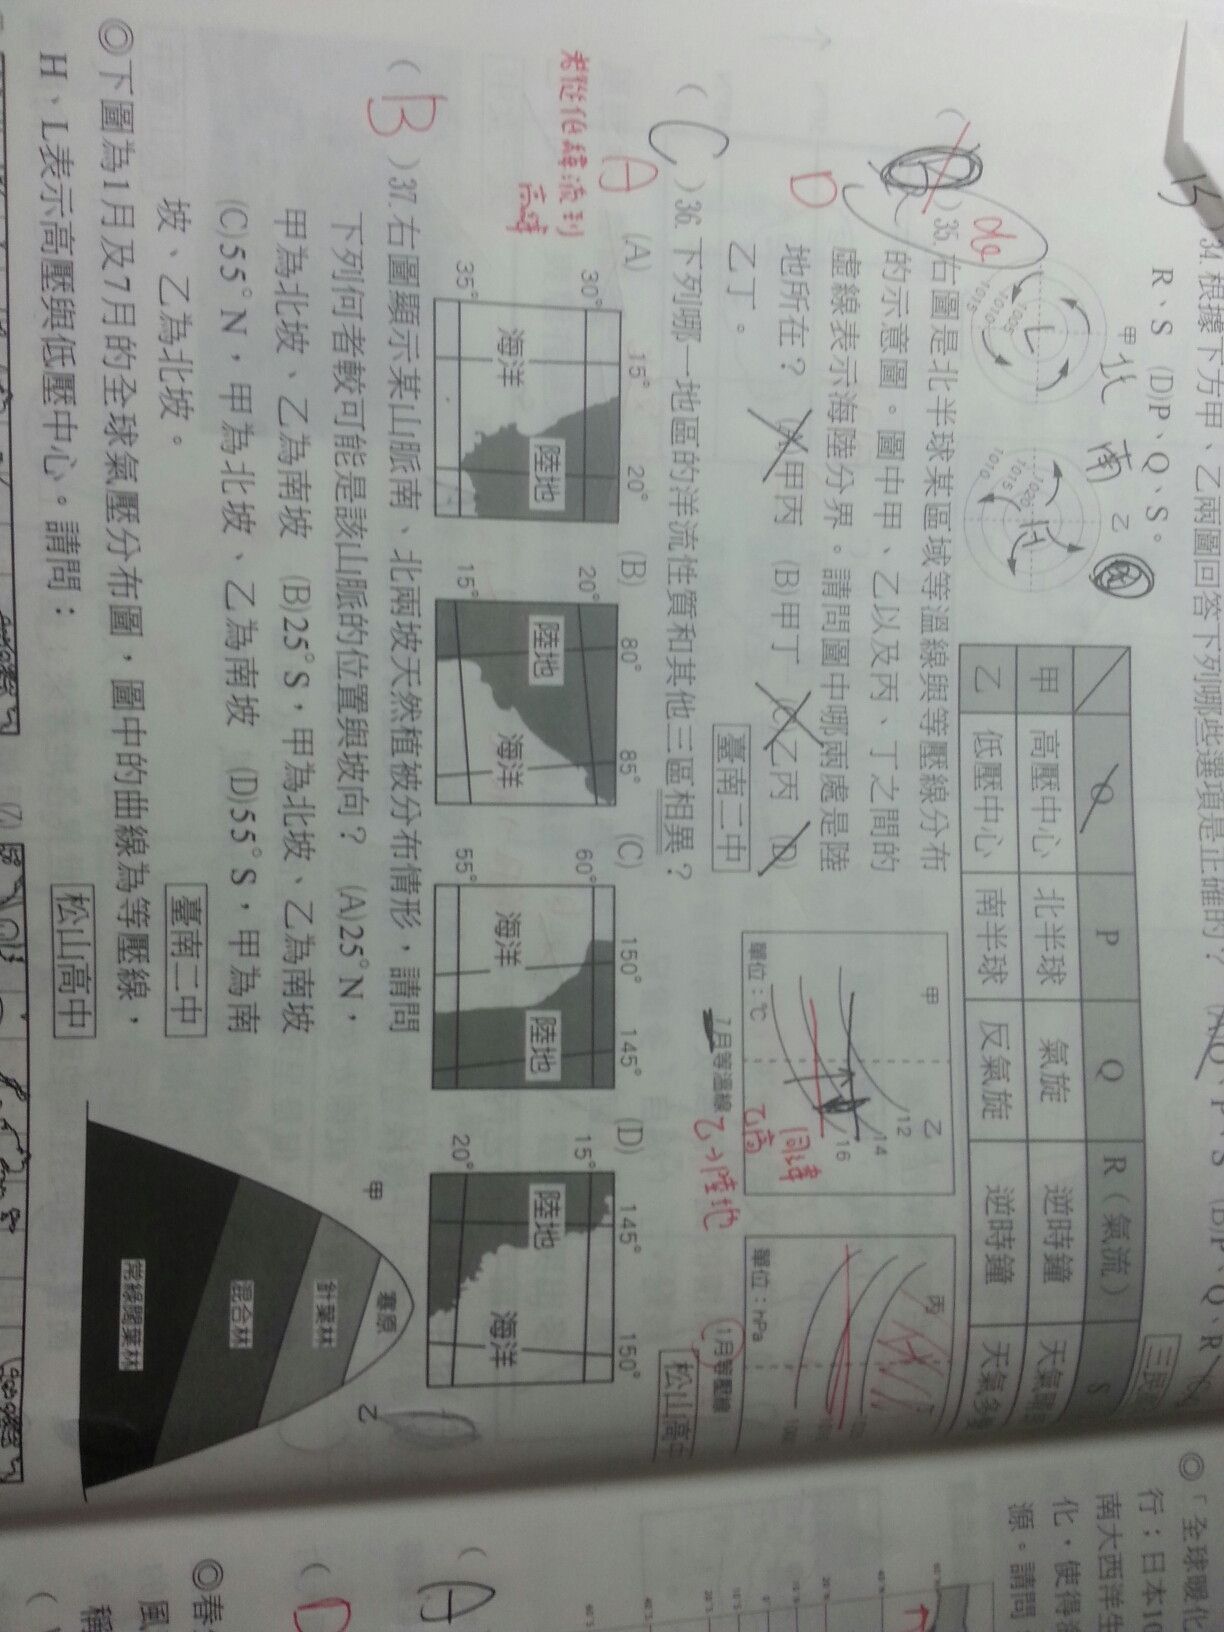 34. 根據下方甲、乙兩圖回答下列哪些選項是正確的？
R、S (D)P、Q、S。
甲 北
南 乙
L
1005
1010
1015
H
1020
1015
1010
P Q R（氣流） S
甲 高壓中心 北半球 氣旋 逆時鐘
乙 低壓中心 南半球 反氣旋 逆時鐘
D
( )35. 右圖是北半球某區域等溫線與等壓線分布
的示意圖。圖中甲、乙以及丙、丁之間的
虛線表示海陸分界。請問圖中哪兩處是陸
地所在？ (A)甲丙 (B)甲丁 (C)乙丙 (D)
乙丁。
臺南二中
甲 乙
12
14
16
單位：℃
7月等溫線
同緯
乙高
乙→陸地
丙
單位：hPa
1月等壓線
松山高中
( C )36. 下列哪一地區的洋流性質和其他三區相異？
A
(A) 15° 20°
30°
35°
海洋 陸地
(B) 80° 85°
20°
15°
陸地 海洋
(C) 150° 145°
60°
55°
海洋 陸地
(D) 145° 150°
15°
20°
陸地 海洋
( B )37. 右圖顯示某山脈南、北兩坡天然植被分布情形，請問
下列何者較可能是該山脈的位置與坡向？ (A)25°N，
甲為北坡、乙為南坡 (B)25°S，甲為北坡、乙為南坡
(C)55°N，甲為北坡、乙為南坡 (D)55°S，甲為南
坡、乙為北坡。
臺南二中
甲 乙
寒原
針葉林
混合林
常綠闊葉林
◎下圖為1月及7月的全球氣壓分布圖，圖中的曲線為等壓線，
H、L表示高壓與低壓中心。請問：
松山高中
◎「全球暖化
行；日本10
南大西洋生
化，使得
源。請問
( A
( D
◎春
風
稱